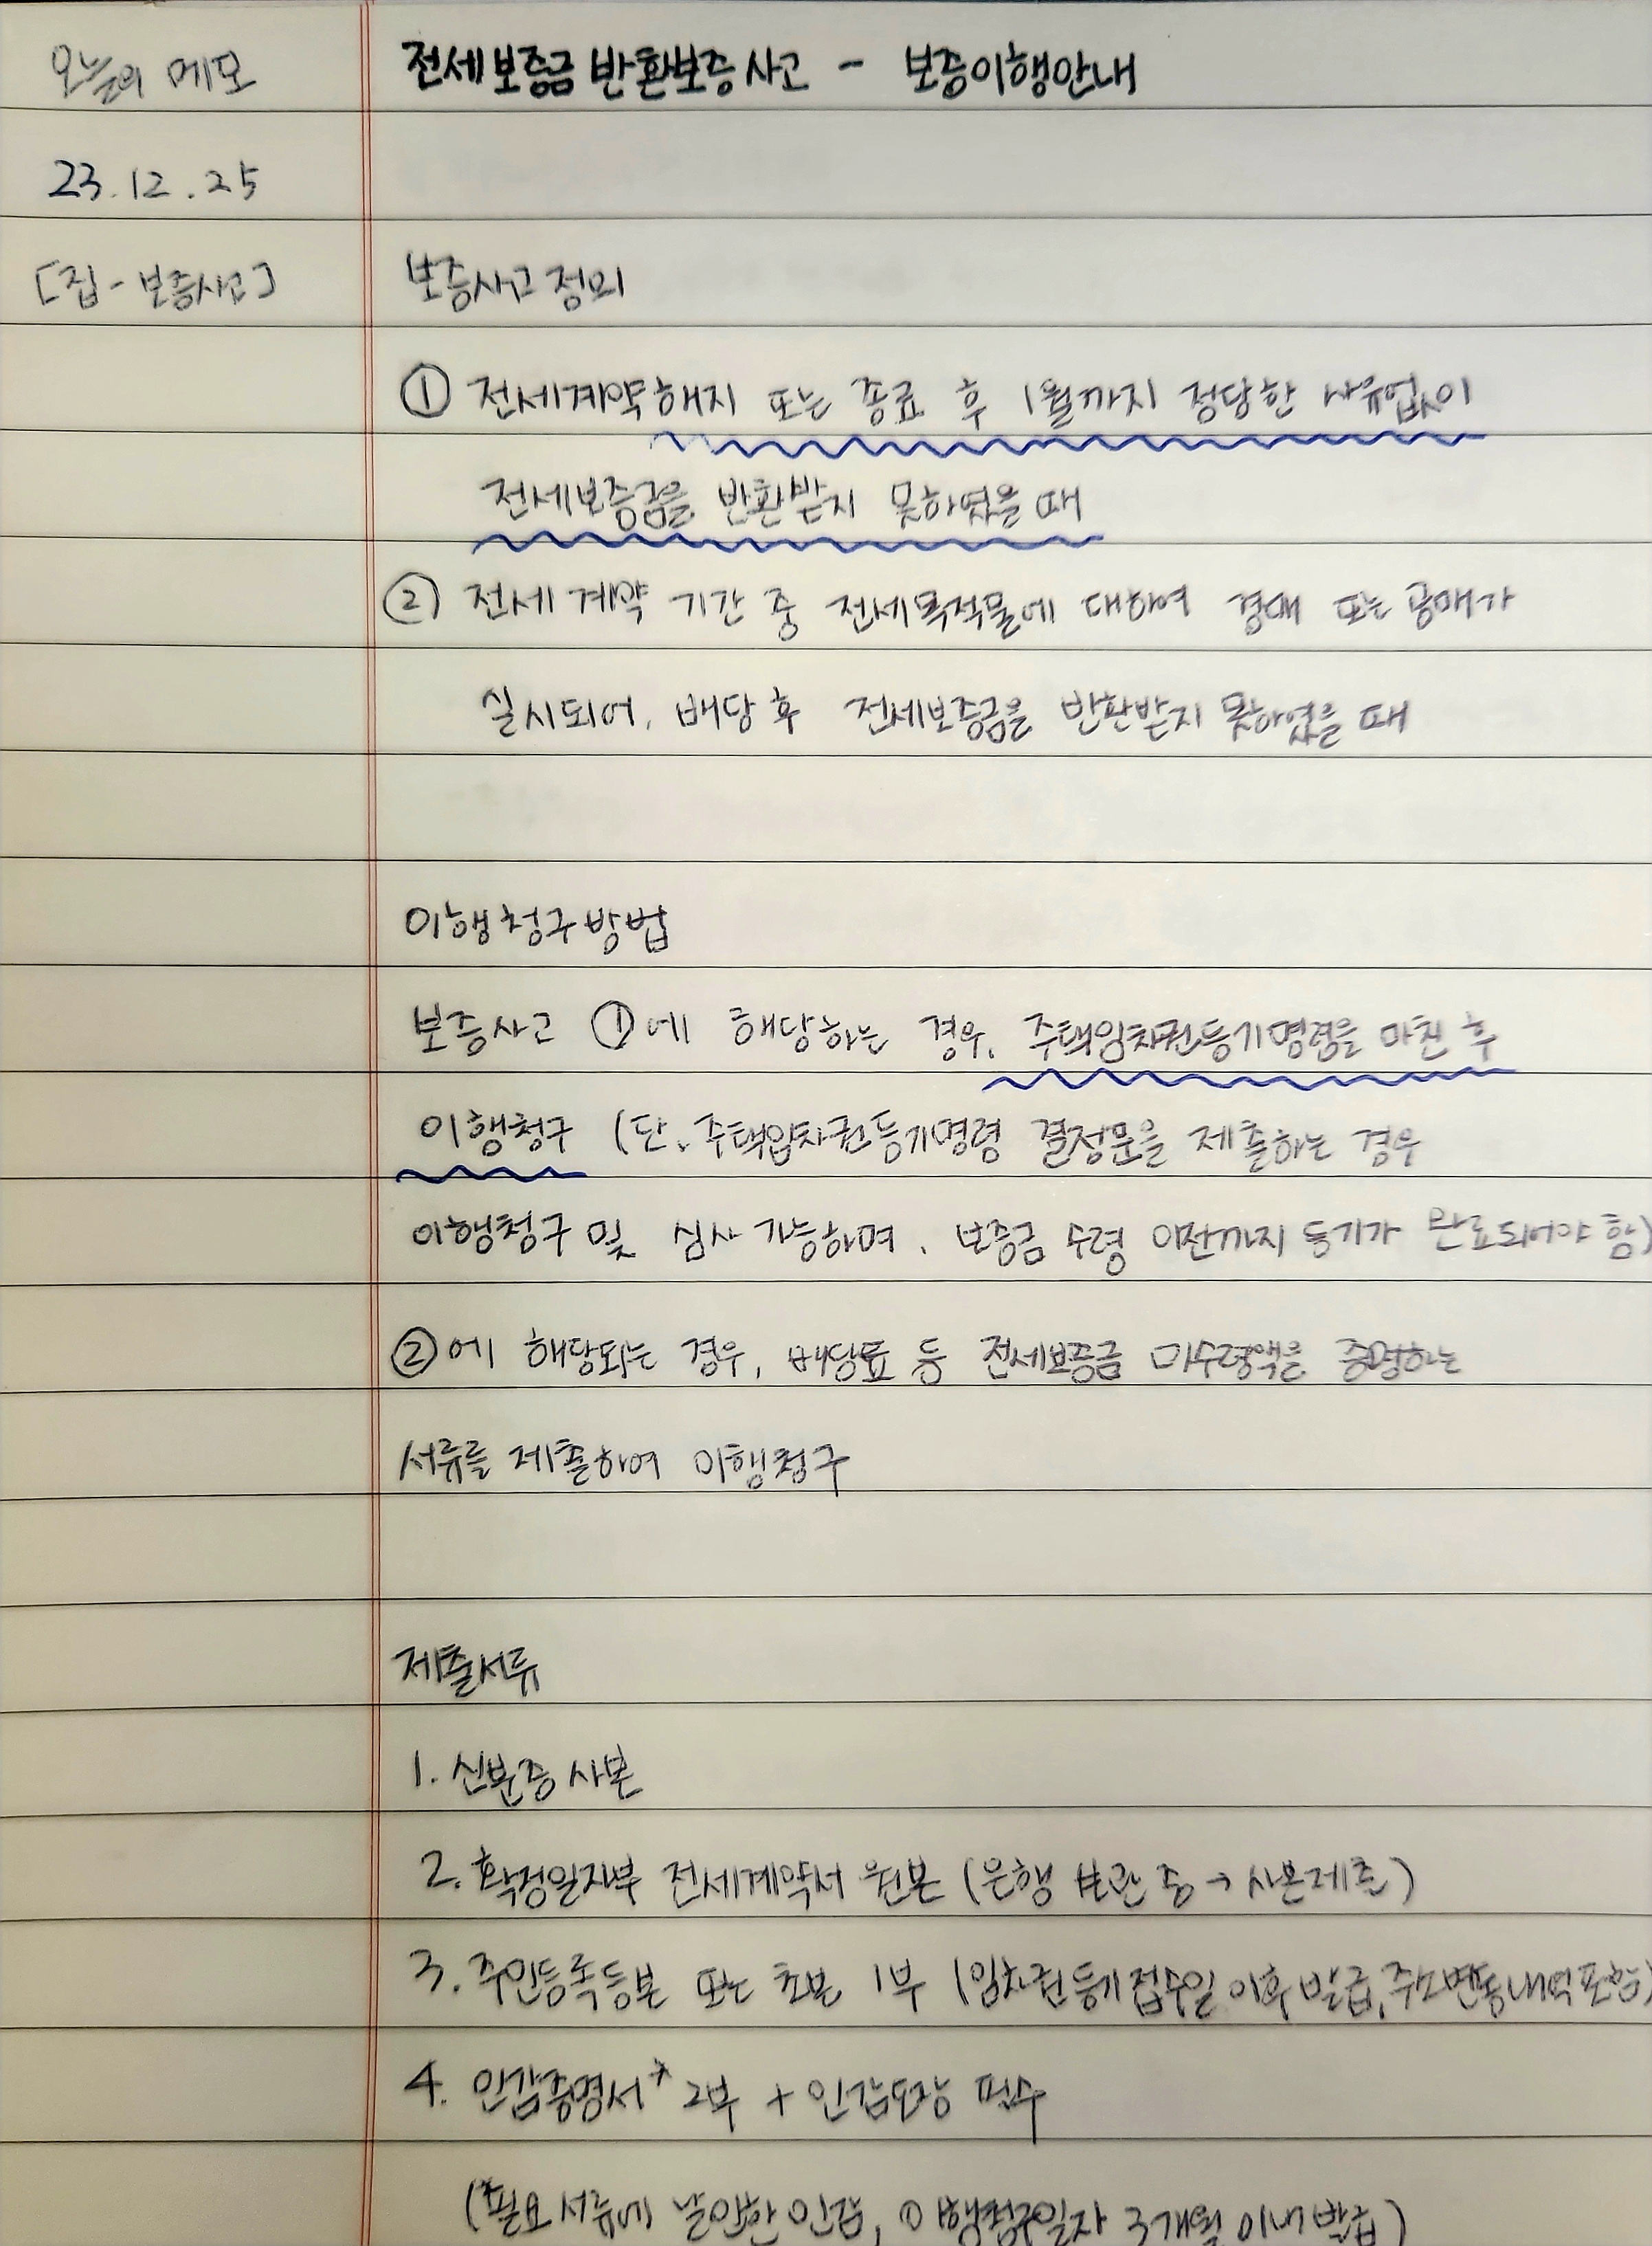 오늘의 메모
전세보증금 반환보증 사고 - 보증이행안내
23.12.25
[집-보증사고]
보증사고 정의
① 전세계약 해지 또는 종료 후 1월까지 정당한 사유없이
전세보증금을 반환받지 못하였을 때
② 전세계약 기간 중 전세목적물에 대하여 경매 또는 공매가
실시되어, 배당 후 전세보증금을 반환받지 못하였을 때
이행청구방법
보증사고 ①에 해당하는 경우, 주택임차권등기명령을 마친 후
이행청구 (단, 주택임차권등기명령 결정문을 제출하는 경우
이행청구 및 심사 가능하며, 보증금 수령 이전까지 등기가 완료되어야 함)
②에 해당되는 경우, 배당표 등 전세보증금 미수령액을 증명하는
서류를 제출하여 이행청구
제출서류
1. 신분증 사본
2. 확정일자부 전세계약서 원본 (은행 보관 중 → 사본제출)
3. 주민등록등본 또는 초본 1부 (임차권등기 접수일 이후 발급, 주소변동내역 포함)
4. 인감증명서* 2부 + 인감도장 필수
(*필요서류에 날인한 인감, 이행청구일자 3개월 이내 발급)